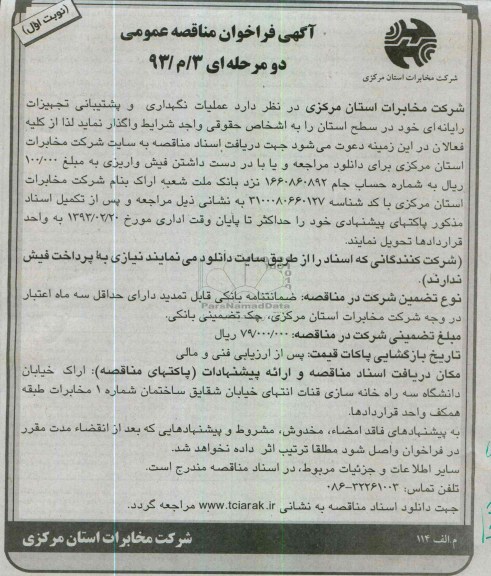 (نوبت اول)
آگهی فراخوان مناقصه عمومی
دو مرحله‌ای ۳/م/۹۳
شرکت مخابرات استان مرکزی
شرکت مخابرات استان مرکزی در نظر دارد عملیات نگهداری و پشتیبانی تجهیزات
رایانه‌ای خود در سطح استان را به اشخاص حقوقی واجد شرایط واگذار نماید لذا از کلیه
فعالان در این زمینه دعوت می‌شود جهت دریافت اسناد مناقصه به سایت شرکت مخابرات
استان مرکزی برای دانلود مراجعه و یا با در دست داشتن فیش واریزی به مبلغ ۱۰۰/۰۰۰
ریال به شماره حساب جام ۱۶۶۰۸۶۰۸۹۲ نزد بانک ملت شعبه اراک بنام شرکت مخابرات
استان مرکزی با کد شناسه ۳۱۰۰۰۸۰۶۶۰۱۲۷ به نشانی ذیل مراجعه و پس از تکمیل اسناد
مذکور پاکتهای پیشنهادی خود را حداکثر تا پایان وقت اداری مورخ ۱۳۹۳/۰۲/۲۰ به واحد
قراردادها تحویل نمایند.
(شرکت کنندگانی که اسناد را از طریق سایت دانلود می نمایند نیازی به پرداخت فیش
ندارند).
نوع تضمین شرکت در مناقصه: ضمانتنامه بانکی قابل تمدید دارای حداقل سه ماه اعتبار
در وجه شرکت مخابرات استان مرکزی، چک تضمینی بانکی.
مبلغ تضمینی شرکت در مناقصه: ۷۹/۰۰۰/۰۰۰ ریال
تاریخ بازگشایی پاکات قیمت: پس از ارزیابی فنی و مالی
مکان دریافت اسناد مناقصه و ارائه پیشنهادات (پاکتهای مناقصه): اراک خیابان
دانشگاه سه راه خانه سازی قنات انتهای خیابان شقایق ساختمان شماره ۱ مخابرات طبقه
همکف واحد قراردادها.
به پیشنهادهای فاقد امضاء، مخدوش، مشروط و پیشنهادهایی که بعد از انقضاء مدت مقرر
در فراخوان واصل شود مطلقا ترتیب اثر داده نخواهد شد.
سایر اطلاعات و جزئیات مربوط، در اسناد مناقصه مندرج است.
تلفن تماس: ۳۲۲۶۱۰۰۳-۰۸۶
جهت دانلود اسناد مناقصه به نشانی www.tciarak.ir مراجعه گردد.
م.الف ۱۱۴
شرکت مخابرات استان مرکزی
ParsNamadData